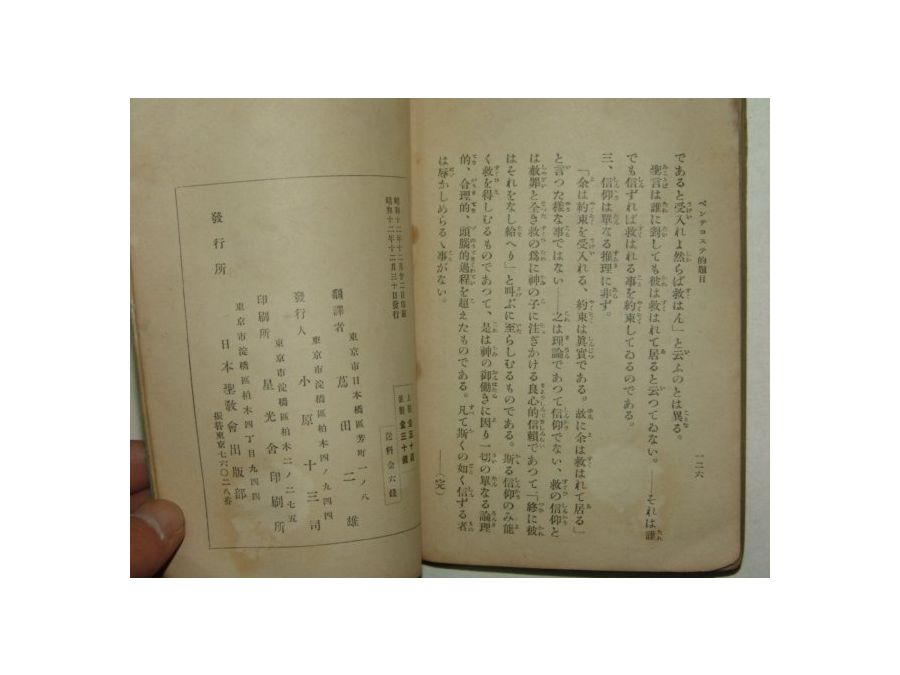 ペンテコステ的題目
一二六
であると受入れよ然らば救はん」と云ふのとは異る。
聖言は誰に對しても彼は救はれて居ると云つてゐない。――それは誰
でも信ずれば救はれる事を約束してゐるのである。
三、信仰は單なる推理に非ず。
「余は約束を受入れる、約束は眞實である。故に余は救はれて居る」
と言つた樣な事ではない――之は理論であつて信仰でない、救の信仰と
は赦罪と全き救の爲に神の子に注ぎかける良心的信賴であつて「終に彼
はそれをなし給へり」と叫ぶに至らしむるものである。斯る信仰のみ能
く救を得しむるものであつて、是は神の御働きに因り一切の單なる論理
的、合理的、頭腦的過程を超えたものである。凡て斯くの如く信ずる者
は辱かしめらるゝ事がない。
――(完)
昭和十二年十二月廿二日印刷
昭和十二年十二月三十日發行
金三十錢
送料金六錢
東京市日本橋區芳町一ノ八
飜譯者 蔦田二雄
東京市淀橋區柏木四ノ九四四
發行人 小原十三司
東京市淀橋區柏木二ノ二七五
印刷所 星光舍印刷所
東京市淀橋區柏木四丁目九四四
發行所 日本聖敎會出版部
振替東京七六〇二八番